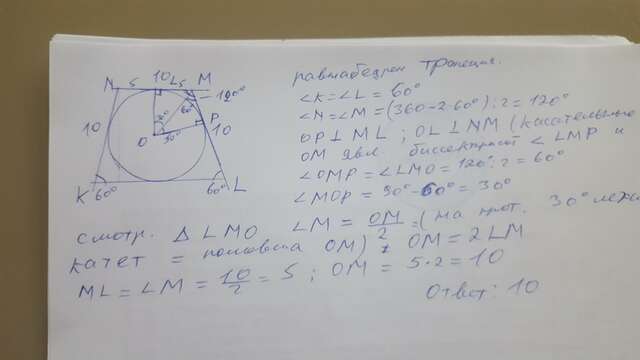 N 5 10 L 5 M
120°
60°
10
P
10
O
30°
K 60°
60° L
равнабедрен трапеция.
∠K = ∠L = 60°
∠N = ∠M = (360 - 2·60°) : 2 = 120°
OP ⊥ ML ; OL ⊥ NM (касательные
OM явл. биссектрисой ∠ LMP и
∠OMP = ∠LMO = 120° : 2 = 60°
∠MOP = 90° - 60° = 30°
смотр. Δ LMO LM = OM/2 = (на прот. 30° лежа
катет = половина OM) OM = 2LM
ML = LM = 10/2 = 5 ; OM = 5·2 = 10
Ответ: 10